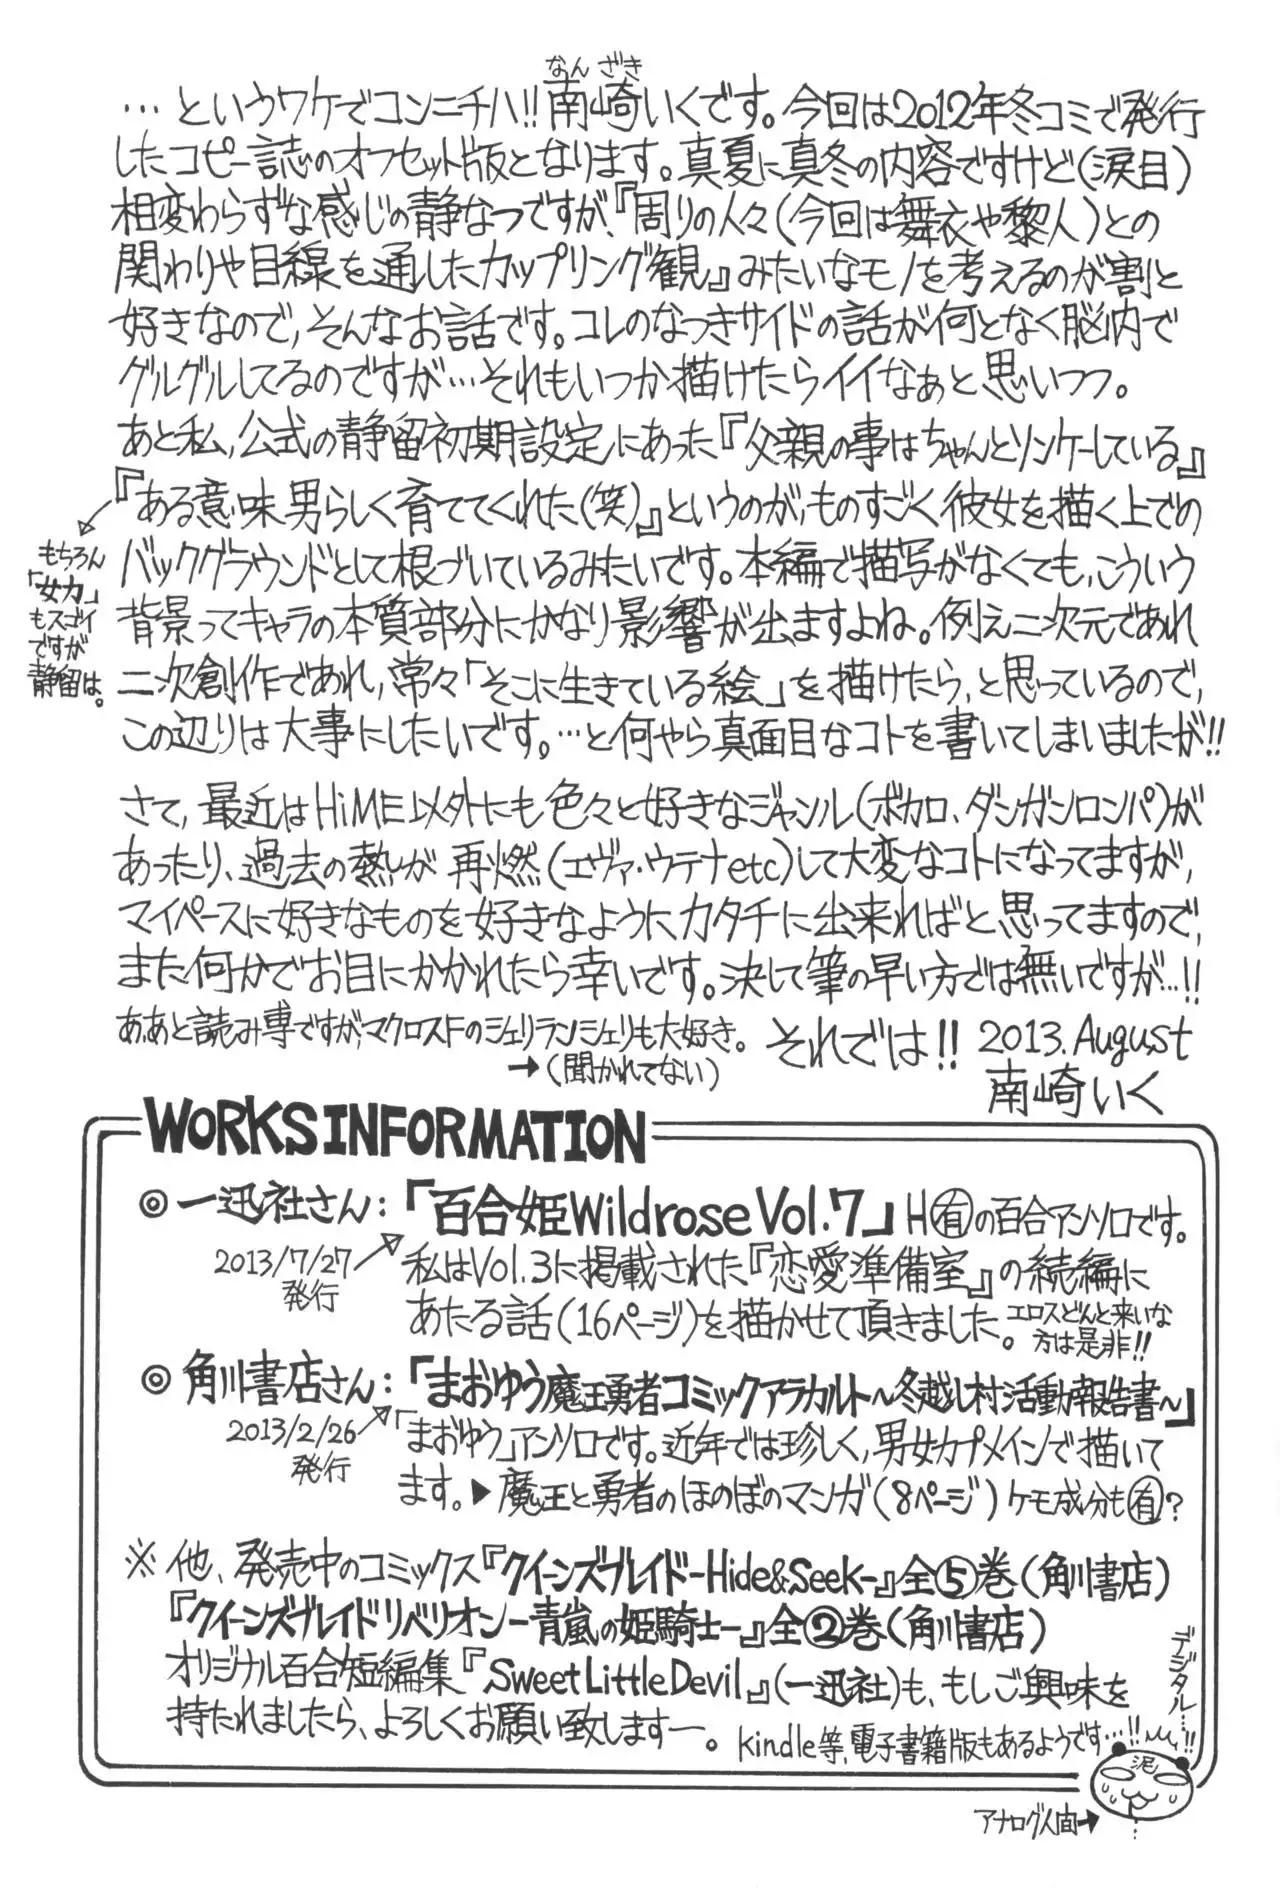 なんざき
…というワケでコンニチハ!!南崎いくです。今回は2012年冬コミで発行
したコピー誌のオフセット版となります。真夏に真冬の内容ですけど(涙目)
相変わらずな感じの静なつですが、『周りの人々(今回は舞衣や黎人)との
関わりや目線を通したカップリング観』みたいなモノを考えるのが割と
好きなので、そんなお話です。コレのなつきサイドの話が何となく脳内で
グルグルしてるのですが…それもいつか描けたらイイなぁと思いつつ。
あと私、公式の静留初期設定にあった『父親の事はちゃんとソンケーしている』
『ある意味男らしく育ててくれた(笑)』というのが、ものすごく彼女を描く上での
バックグラウンドとして根づいているみたいです。本編で描写がなくても、こういう
背景ってキャラの本質部分にかなり影響が出ますよね。例え二次元であれ
二次創作であれ、常々「そこに生きている絵」を描けたら、と思っているので、
この辺りは大事にしたいです。…と何やら真面目なコトを書いてしまいましたが!!
もちろん
「女力」
もスゴイ
ですが
静留は。
さて、最近はHiME以外にも色々と好きなジャンル(ボカロ、ダンガンロンパ)が
あったり、過去の熱が再燃(エヴァ・ウテナetc)して大変なコトになってますが、
マイペースに好きなものを好きなようにカタチに出来ればと思ってますので、
また何かでお目にかかれたら幸いです。決して筆の早い方では無いですが…!!
あ、あと読み専ですが、マクロスFのシェリランシェリも大好き。
→(聞かれてない)
それでは!! 2013.August
南崎いく
WORKS INFORMATION
◎一迅社さん:「百合姫Wildrose Vol.7」H有の百合アンソロです。
2013/7/27
発行
私はVol.3に掲載された『恋愛準備室』の続編に
あたる話(16ページ)を描かせて頂きました。エロスどんと来いな
方は是非!!
◎角川書店さん:「まおゆう魔王勇者コミックアラカルト～冬越し村活動報告書～」
2013/2/26
発行
「まおゆう」アンソロです。近年では珍しく、男女カプメインで描いて
ます。▶魔王と勇者のほのぼのマンガ(8ページ)ケモ成分も有?
※他、発売中のコミックス『クイーンズブレイド-Hide&Seek-』全⑤巻(角川書店)
『クイーンズブレイドリベリオン-青嵐の姫騎士-』全②巻(角川書店)
オリジナル百合短編集『Sweet Little Devil』(一迅社)も、もしご興味を
持たれましたら、よろしくお願い致しますー。kindle等、電子書籍版もあるようです…!!
デジタル…!!
泥
アナログ人間→